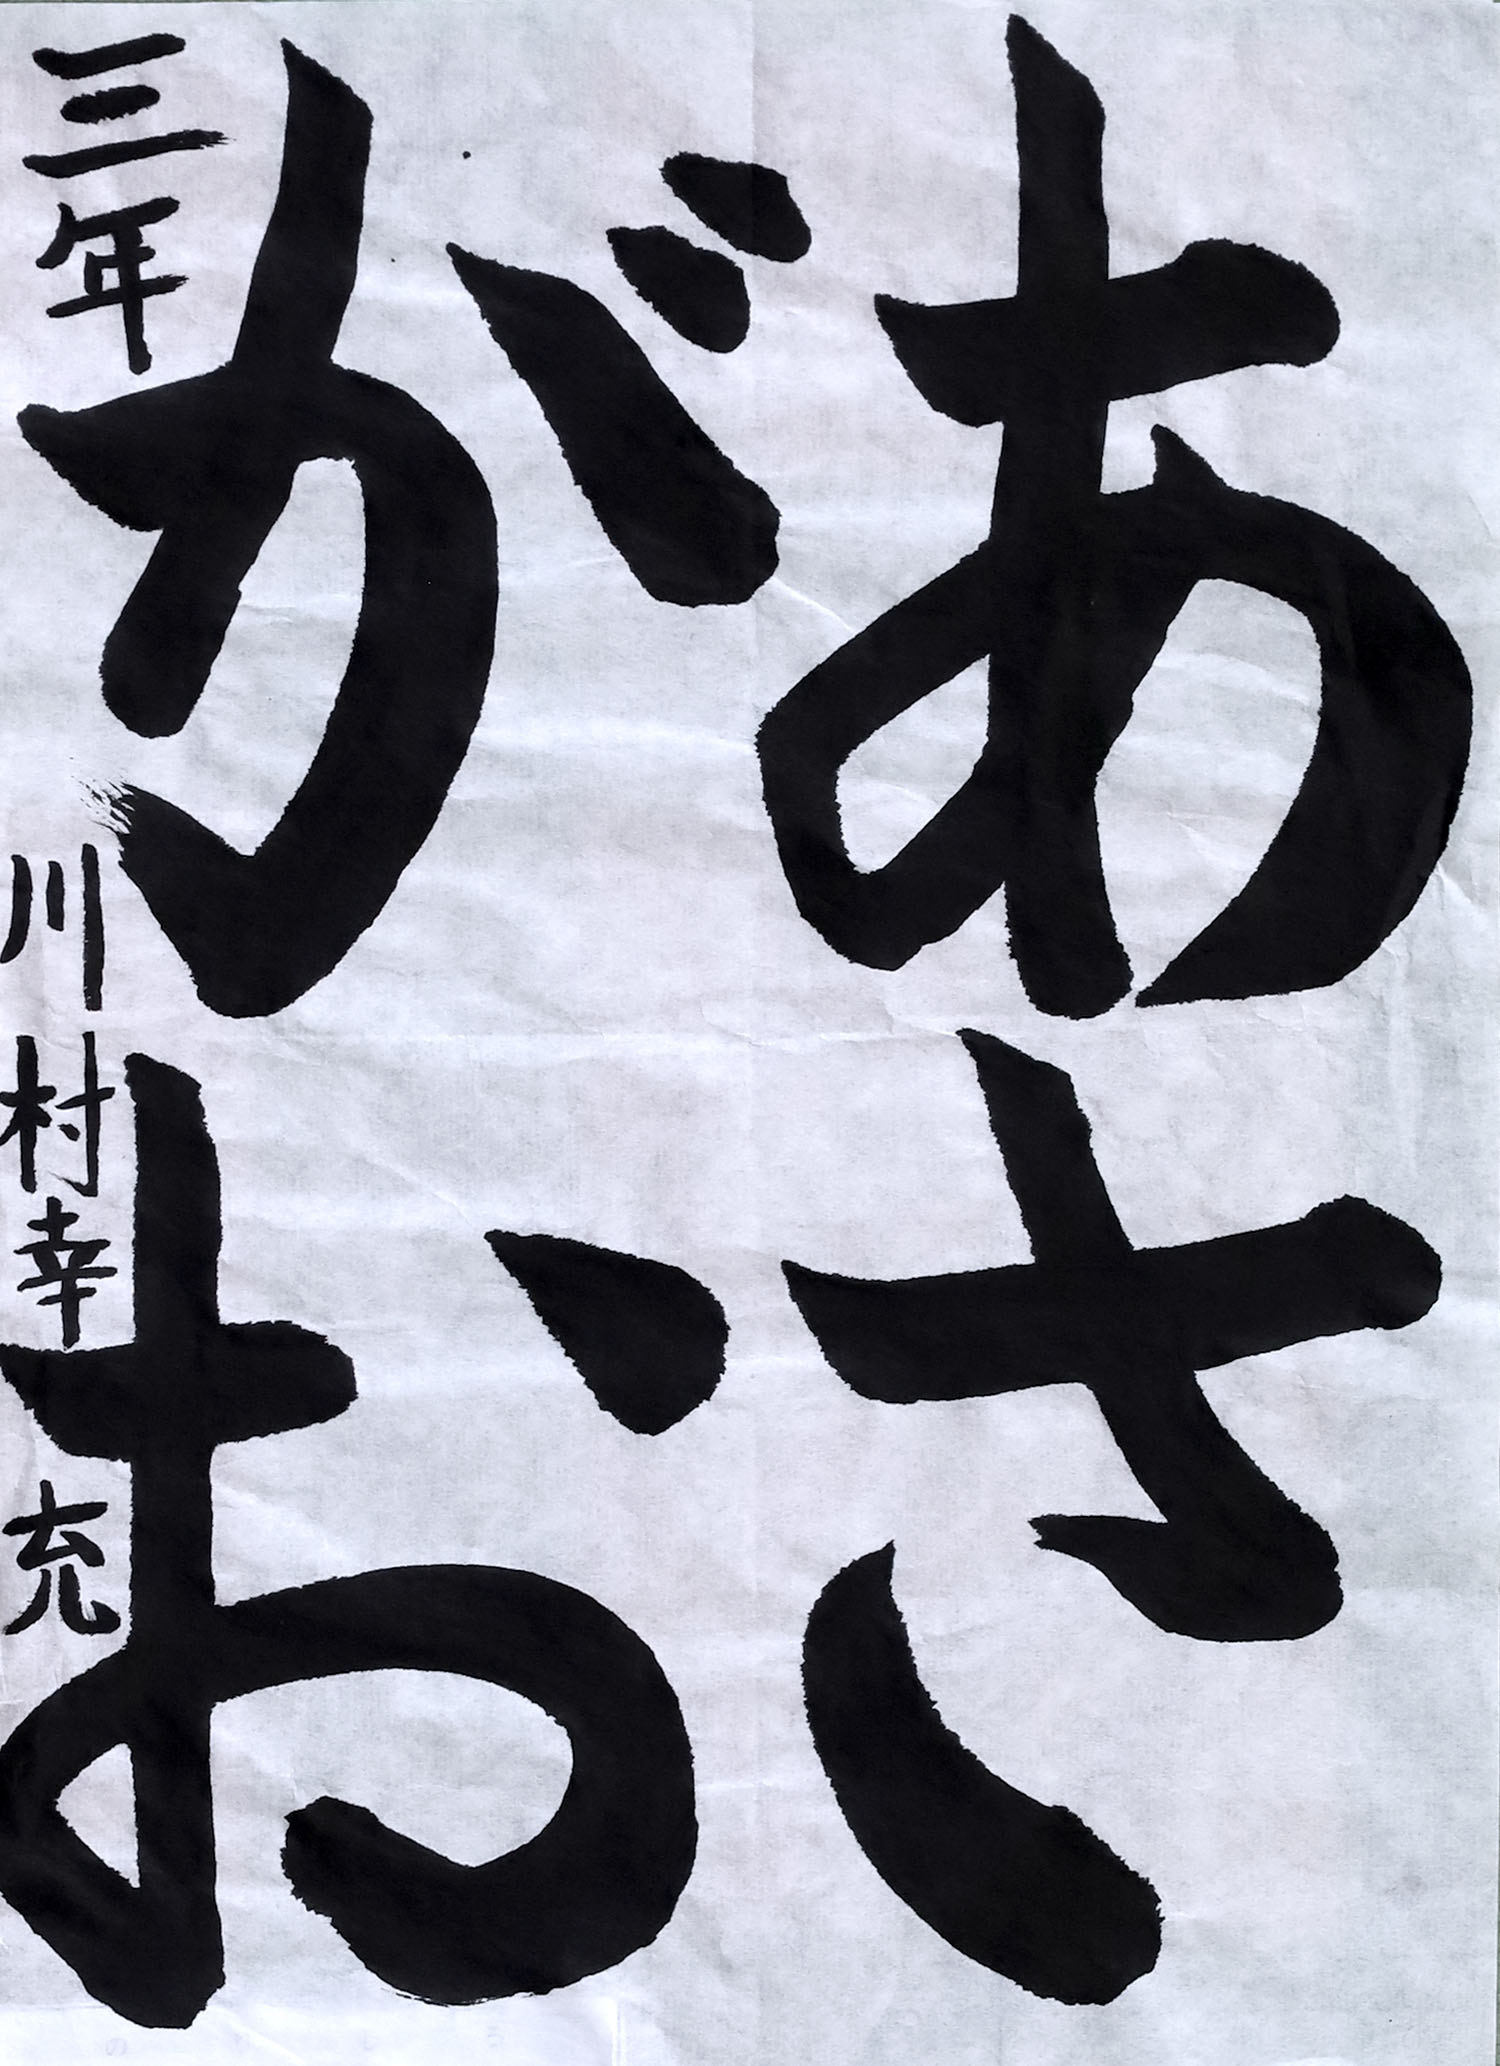 あさ
がお
三年 川村幸充